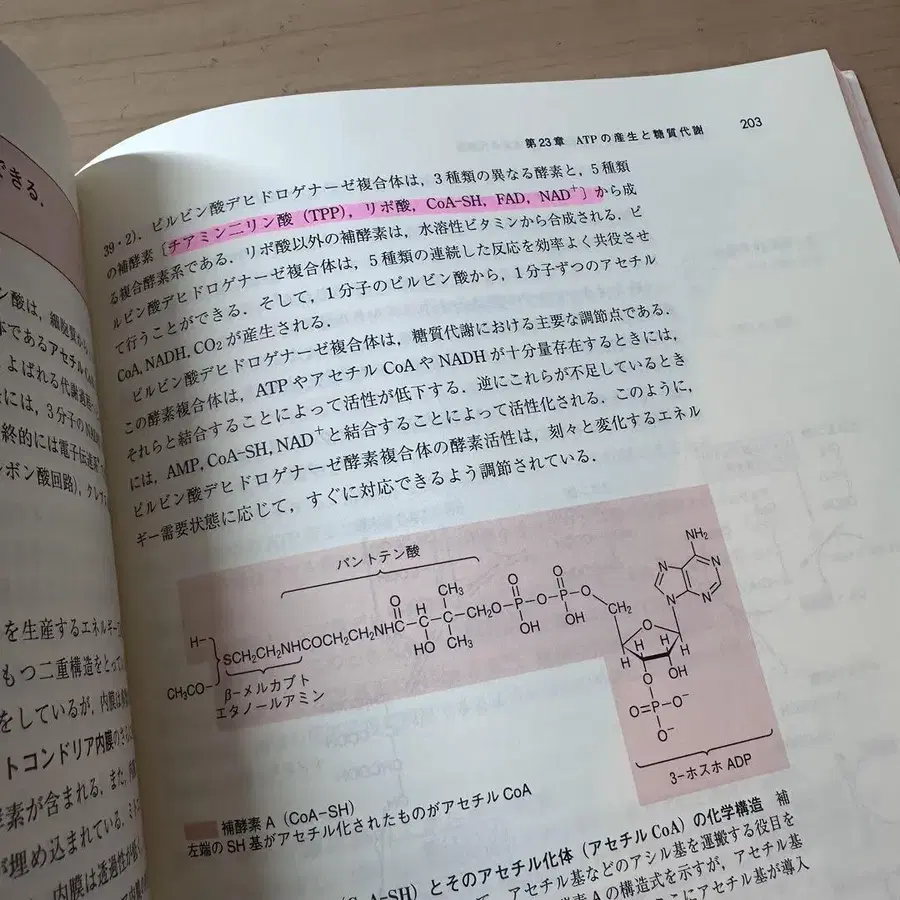 できる．
ン酸は，細胞質か
体であるアセチルCoA
よばれる代謝
には，3分子の
終的には電子伝達
ボン酸回路)，クレ
を生産するエネルギー
もつ二重構造をとって
をしているが，内膜は
トコンドリア内膜の
酵素が含まれる．また，
が埋め込まれている．ミト
内膜は透過性が
第23章 ATPの産生と糖質代謝 203
39・2)．ピルビン酸デヒドロゲナーゼ複合体は，3種類の異なる酵素と，5種類
の補酵素〔チアミン二リン酸（TPP），リポ酸，CoA-SH, FAD, NAD⁺〕から成
る複合酵素系である．リポ酸以外の補酵素は，水溶性ビタミンから合成される．ピ
ルビン酸デヒドロゲナーゼ複合体は，5種類の連続した反応を効率よく共役させ
て行うことができる．そして，1分子のピルビン酸から，1分子ずつのアセチル
CoA, NADH, CO₂が産生される．
ピルビン酸デヒドロゲナーゼ複合体は，糖質代謝における主要な調節点である．
この酵素複合体は，ATPやアセチルCoAやNADHが十分量存在するときには，
それらと結合することによって活性が低下する．逆にこれらが不足しているとき
には，AMP, CoA-SH, NAD⁺と結合することによって活性化される．このように，
ピルビン酸デヒドロゲナーゼ酵素複合体の酵素活性は，刻々と変化するエネル
ギー需要状態に応じて，すぐに対応できるよう調節されている．
パントテン酸
NH₂
N N N N
O CH₃ O O
H- SCH₂CH₂NHCOCH₂CH₂NHC-C-C-CH₂O-P-O-P-O CH₂ O
H HO CH₃ OH OH H H H H
CH₃CO-
β-メルカプト
エタノールアミン
O OH
O=P-O⁻
O⁻
3-ホスホADP
補酵素A（CoA-SH）
左端のSH基がアセチル化されたものがアセチルCoA
-SH）とそのアセチル化体（アセチルCoA）の化学構造 補
アセチル基などのアシル基を運搬する役目を
素Aの構造式を示すが，アセチル基
にアセチル基が導入